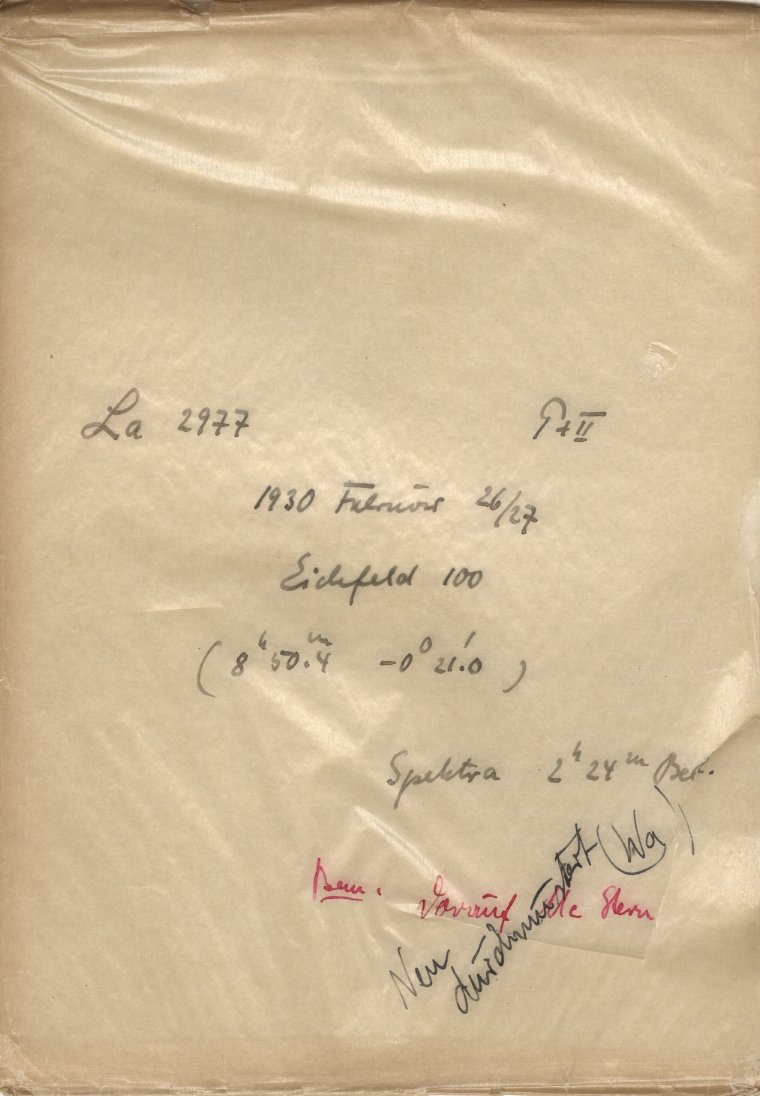 La 2977 P+II
1930 Februar 26/27
Eichfeld 100
(8ʰ50.ᵐ4 -0⁰21.′0)
Spektra 2ʰ24ᵐ Bel.
Bem. Darauf Stern
Neu
durchmustert (Wa)